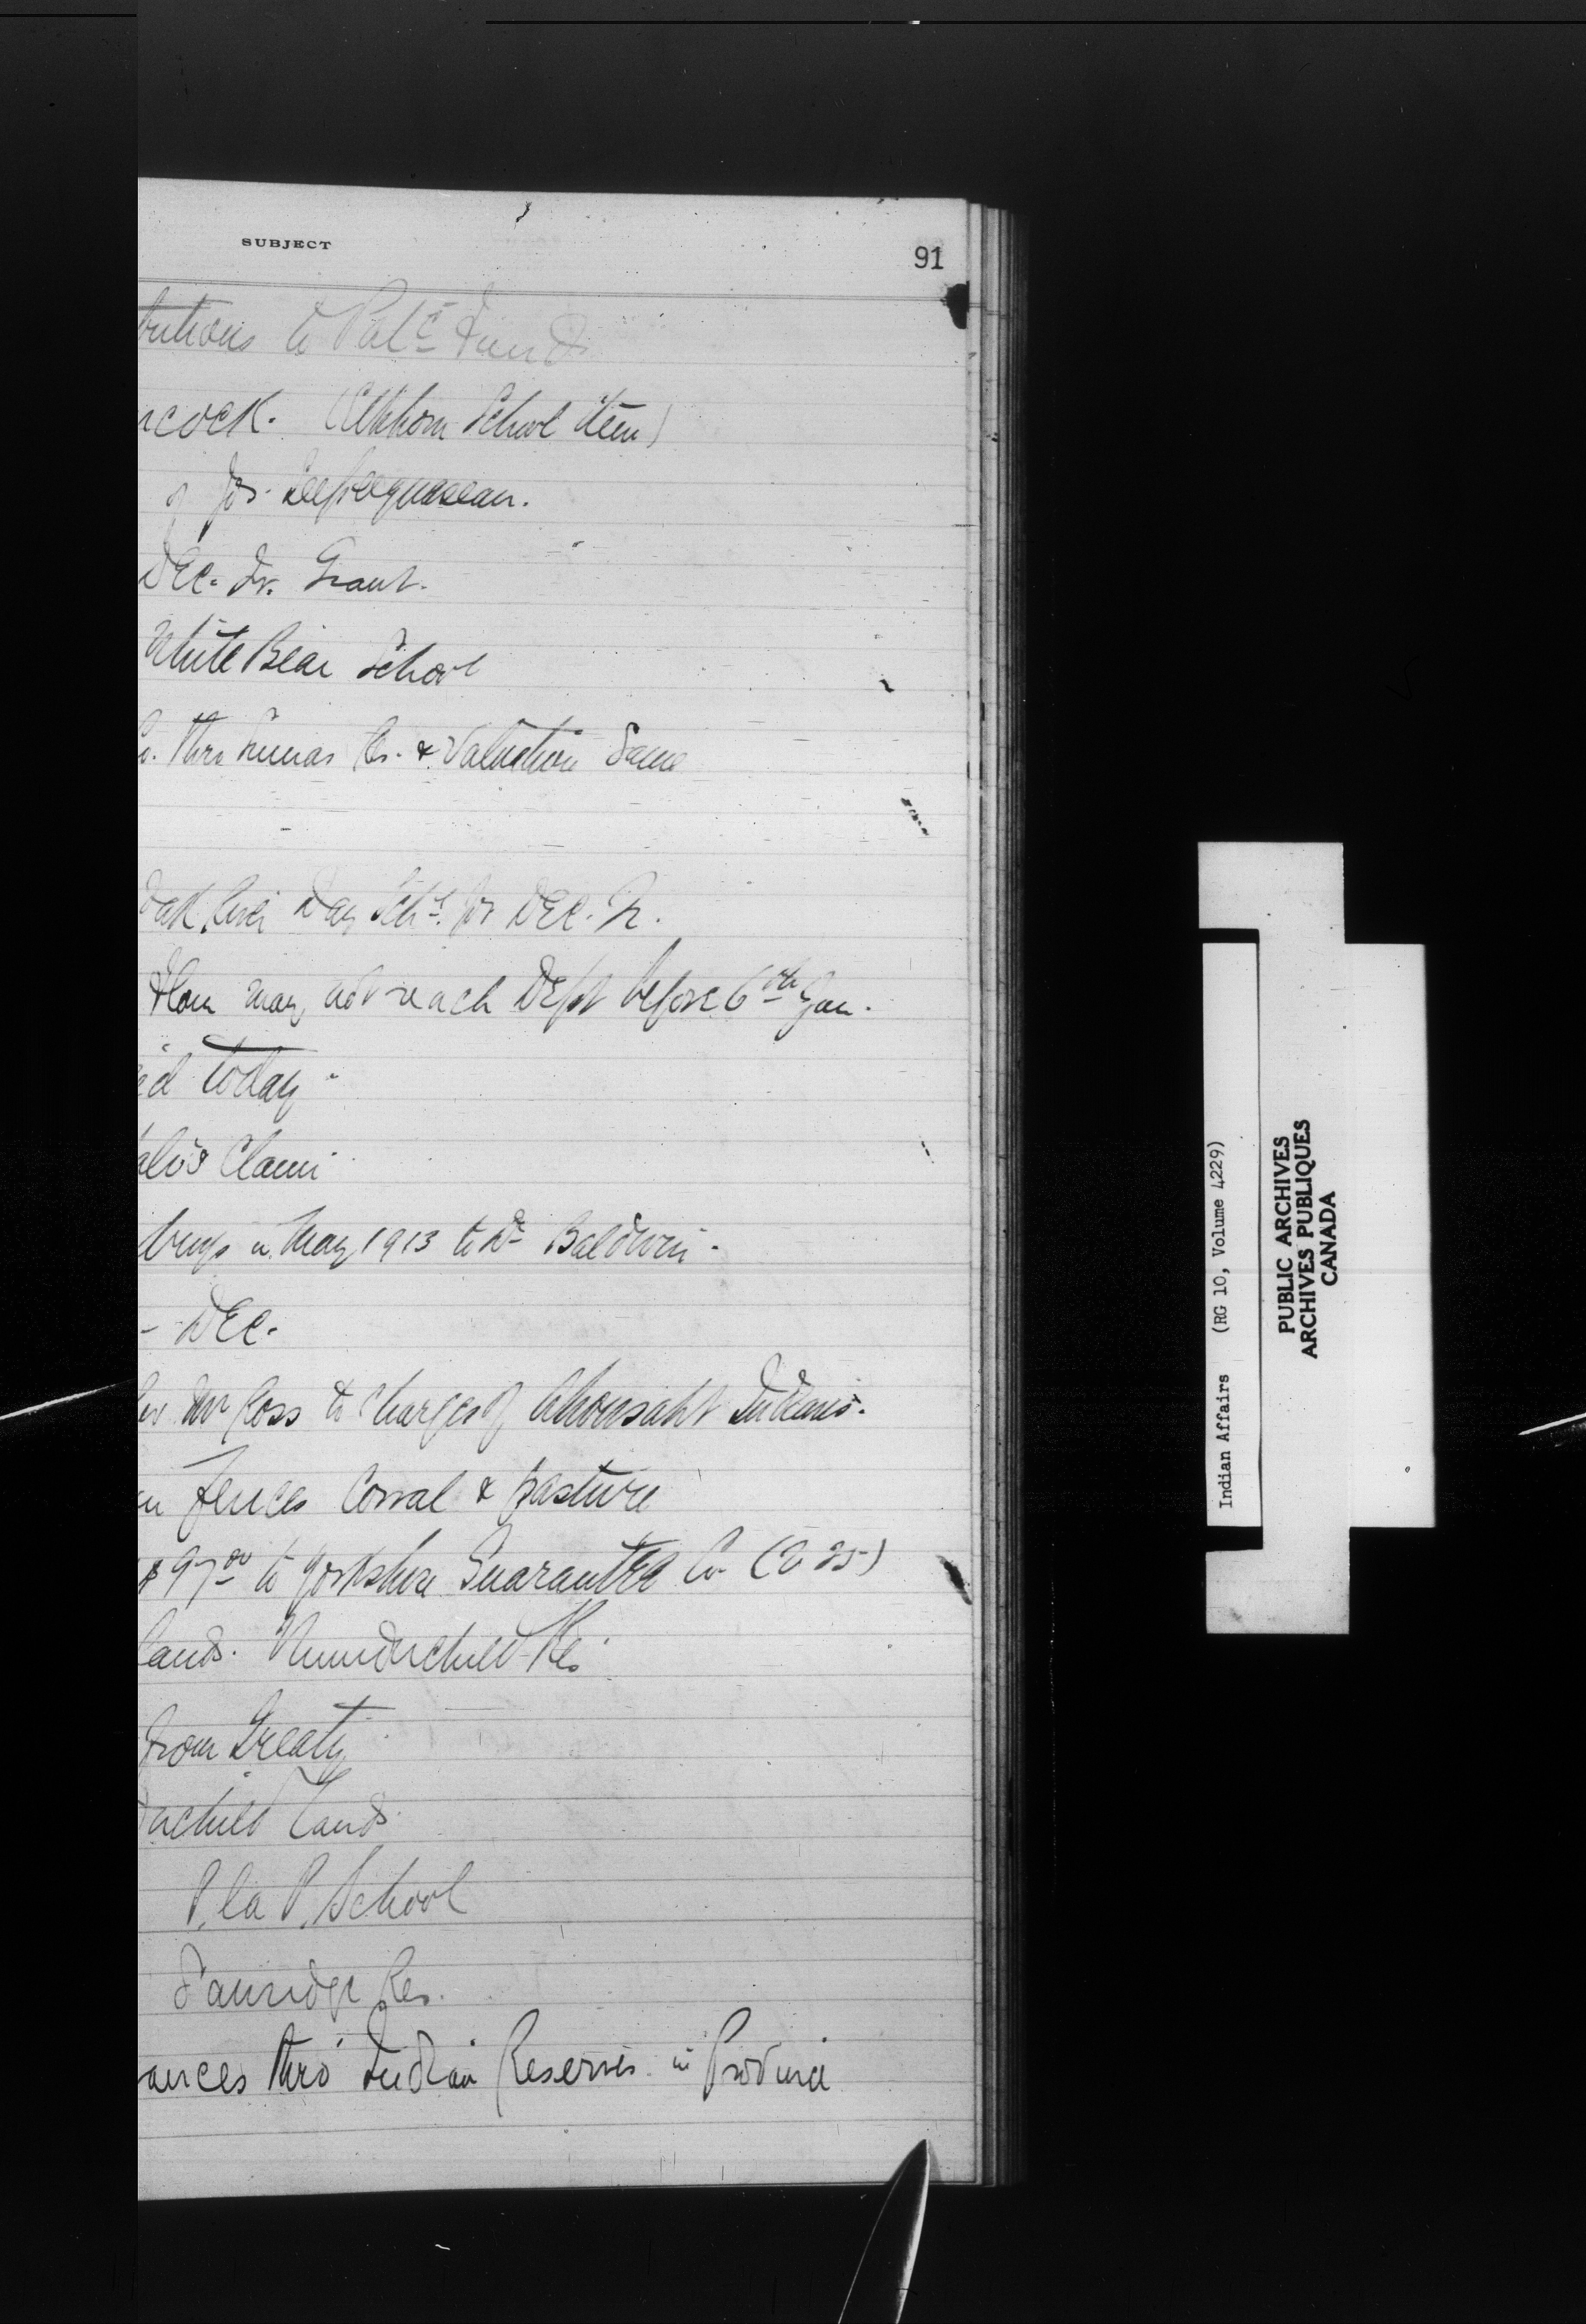 SUBJECT
91
butions to Patc Fund
ncock. (Elkhorn School item)
of Jos.
Dec. Qr. Grant.
White Bear School
Co. thro Sumas Res. & Valuation Same
Oak River Day Schl. for Dec. Qr.
Flour may not reach Dept before 6th Jan.
ed today
Claim
in May 1913 to Dr Baldwin.
- Dec.
Mr Ross to charges of Ahousaht Indians.
fences Corral & pasture
$97.00 to Yorkshire Guarantee Co (225)
lands. Thunderchild Res.
from Treaty
rchild lands
P. la P. School
Sawridge Res.
ances thro' Indian Reserves in Province
Indian Affairs (RG 10, Volume 4229)
PUBLIC ARCHIVES
ARCHIVES PUBLIQUES
CANADA